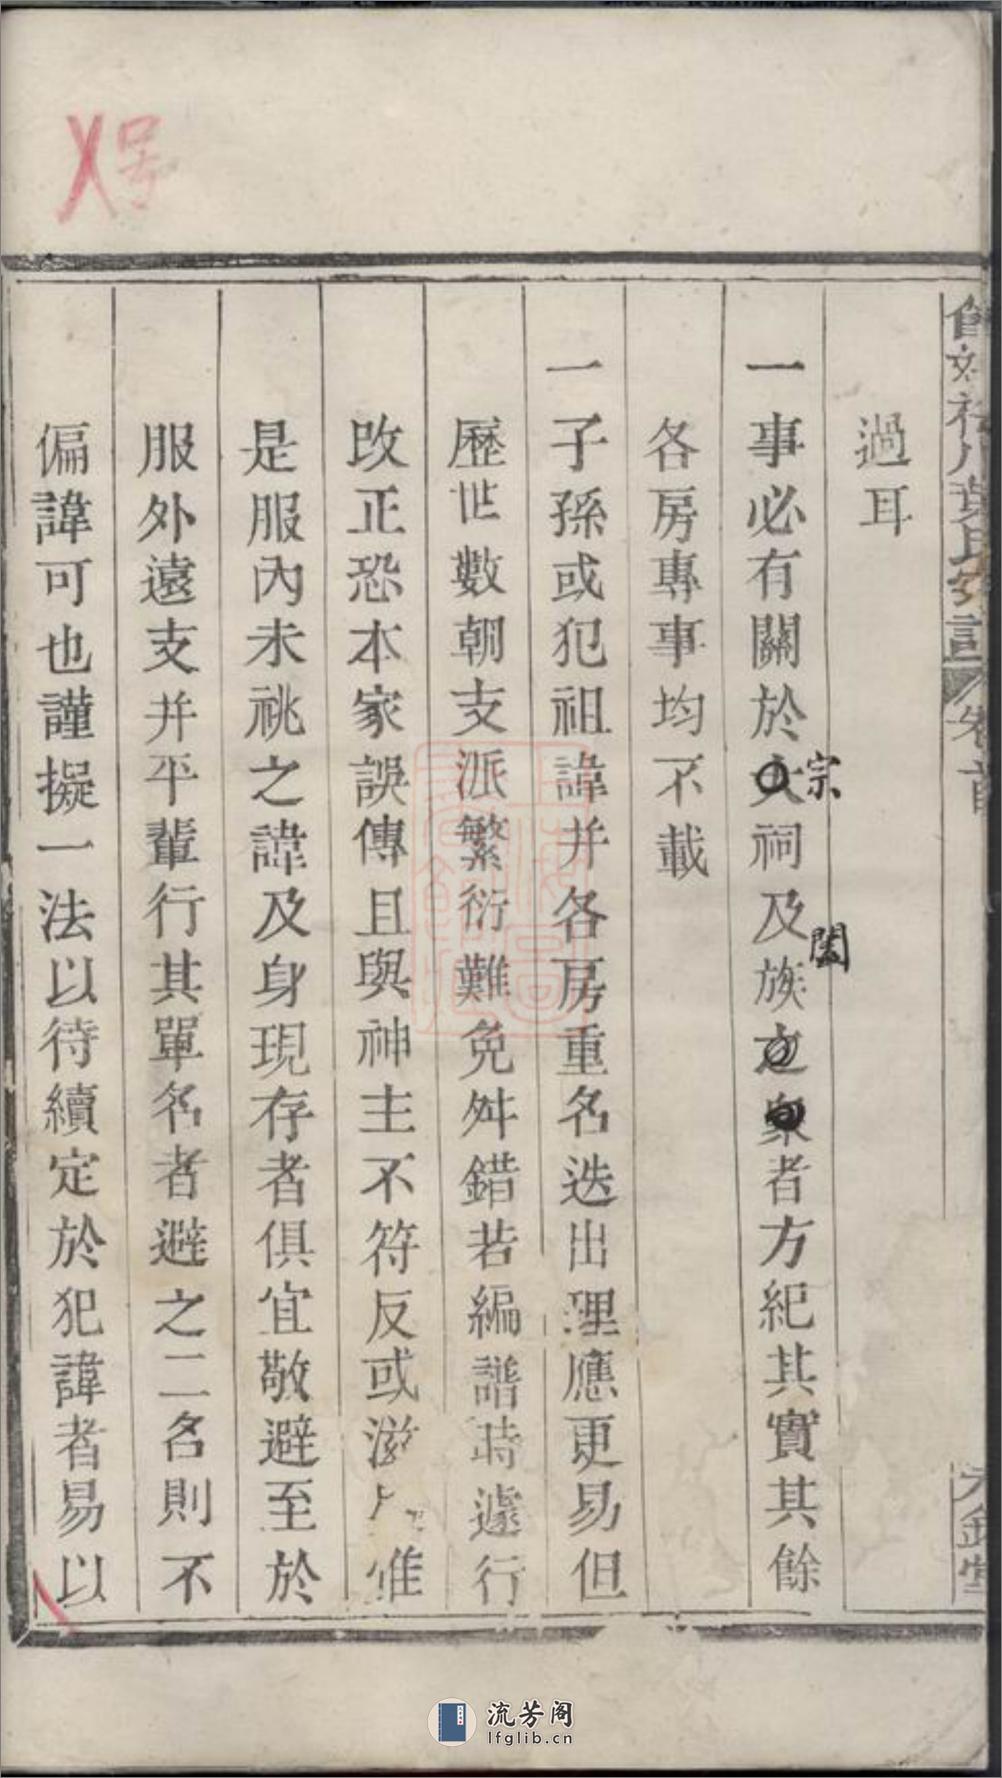 過耳
一事必有關於大祠及族之眾者方紀其實其餘
宗
闔
各房專事均不載
一子孫或犯祖諱并各房重名迭出理應更易但
歷世數朝支派繁衍難免舛錯若編譜時遽行
改正恐本家誤傳且與神主不符反或滋 惟
是服內未祧之諱及身現存者俱宜敬避至於
服外遠支并平輩行其單名者避之二名則不
偏諱可也謹擬一法以待續定於犯諱者易以
葉氏 譜 卷首
号
流芳阁
lfglib.cn